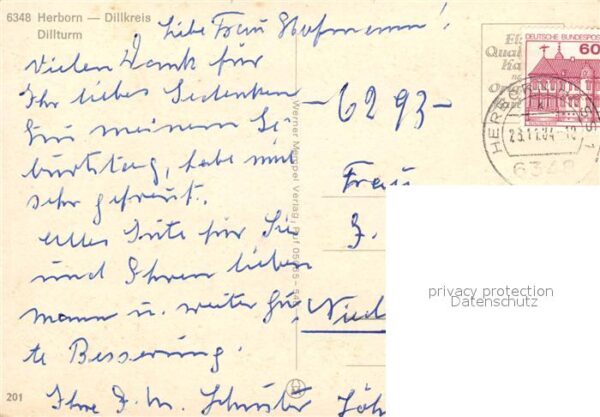 6348 Herborn — Dillkreis
Dillturm
Liebe Frau Hofmann!
Vielen Dank für
Ihr liebes Gedenken
zu meinem Ge-
burtstag, habe mich
sehr gefreut.
Alles Gute für Sie
und Ihren lieben
Mann u. weiter Gu-
te Besserung.
Ihre
Schuster
201
Werner Verlag, Ruf
-6293-
Frau
DEUTSCHE BUNDESPOST
60
HERBORN
6348
privacy protection
Datenschutz